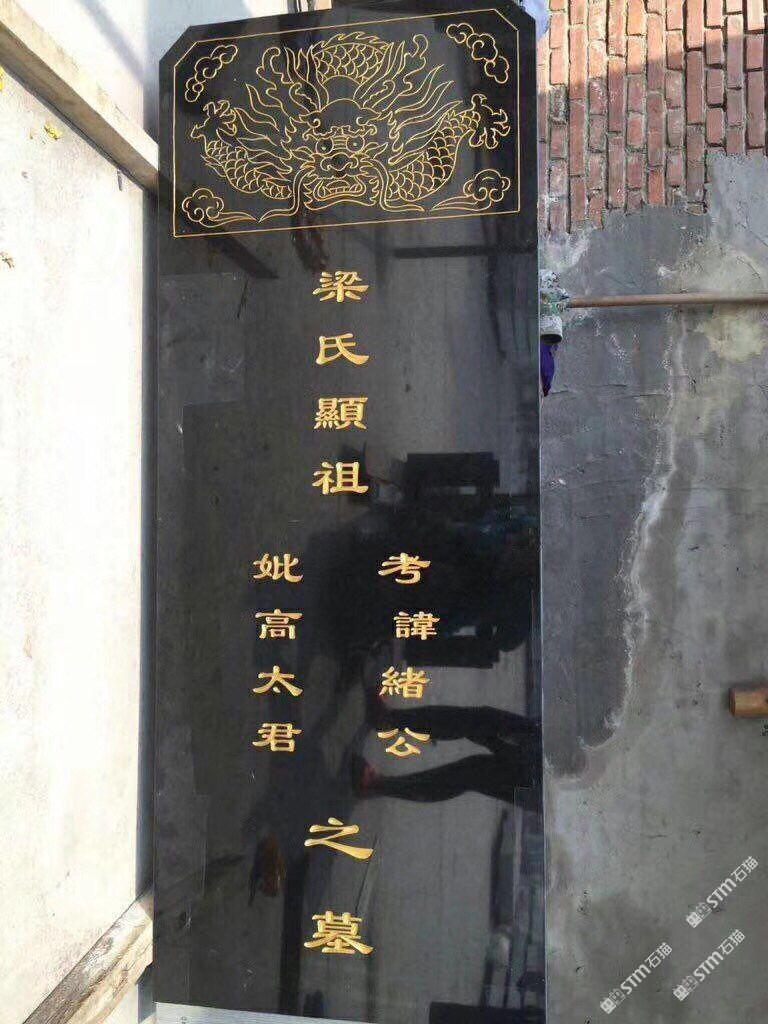 梁氏顯祖
考諱緒公
妣高太君
之墓
STM石猫
STM石猫
STM石猫